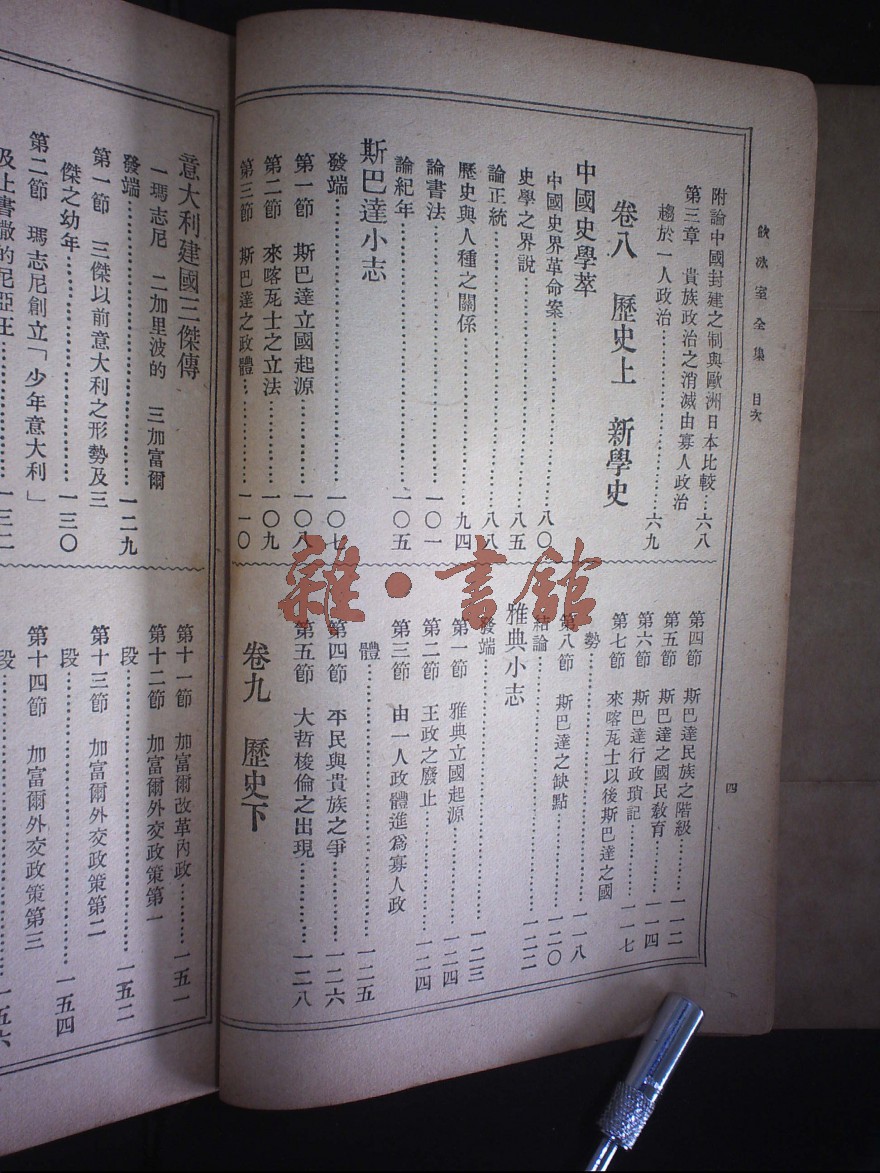 飲冰室全集　目次
四
附論中國封建之制與歐洲日本比較…六八
第三章　貴族政治之消滅由寡人政治
趨於一人政治…六九
卷八　歷史上　新學史
中國史學萃
中國史界革命案…八〇
史學之界說…八五
論正統…八八
歷史與人種之關係…九四
論書法…一〇一
論紀年…一〇五
斯巴達小志
發端…一〇七
第一節　斯巴達立國起源…一〇八
第二節　來喀瓦士之立法…一〇九
第三節　斯巴達之政體…一一〇
第四節　斯巴達民族之階級…一一二
第五節　斯巴達之國民教育…一一四
第六節　斯巴達行政瑣記…一一七
第七節　來喀瓦士以後斯巴達之國
勢…一一八
第八節　斯巴達之缺點…一二〇
結論…一二二
雅典小志
發端…一二三
第一節　雅典立國起源…一二四
第二節　王政之廢止…一二四
第三節　由一人政體進爲寡人政
體…一二五
第四節　平民與貴族之爭…一二六
第五節　大哲梭倫之出現…一二八
卷九　歷史下
意大利建國三傑傳
一瑪志尼　二加里波的　三加富爾
發端…一二九
第一節　三傑以前意大利之形勢及三
傑之幼年…一三〇
第二節　瑪志尼創立「少年意大利」
及上書撒的尼亞王…一三二
第十一節　加富爾改革內政…一五一
第十二節　加富爾外交政策第一
段…一五二
第十三節　加富爾外交政策第二
段…一五四
第十四節　加富爾外交政策第三
段…一五六
雜·書館